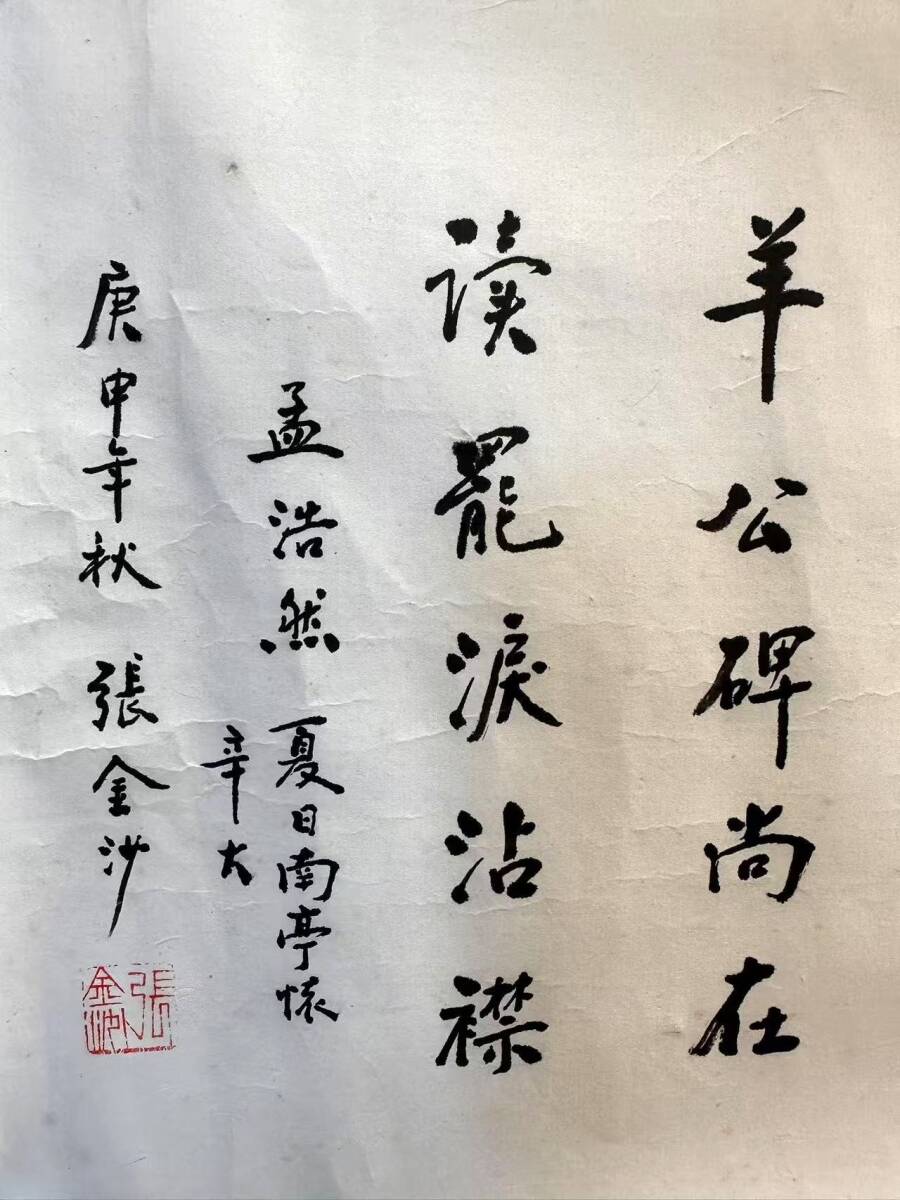 羊公碑尚在
读罷淚沾襟
孟浩然 夏日南亭懷
辛大
庚申年秋 張金沙
張金沙